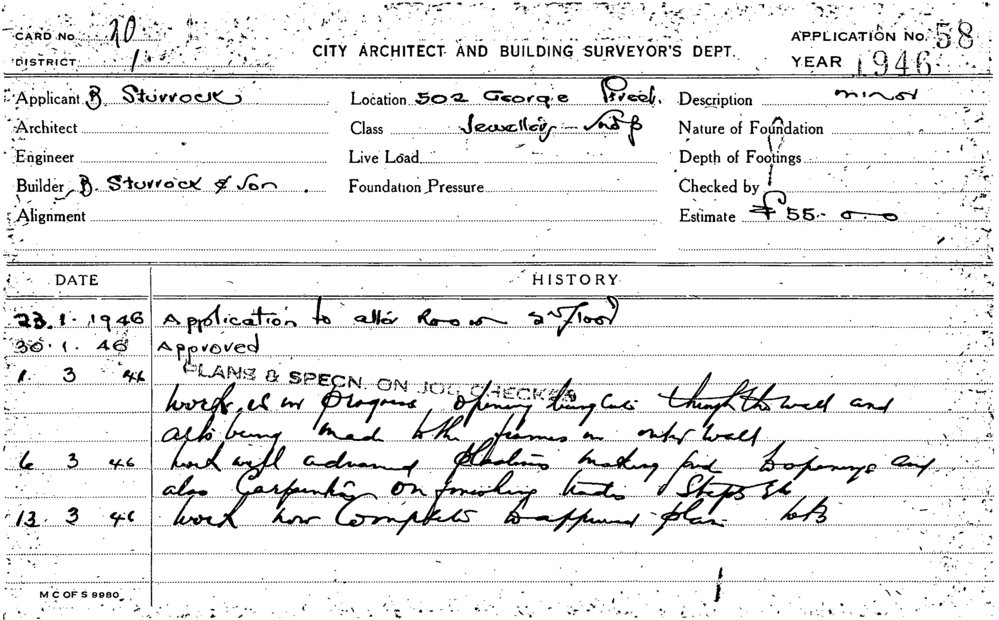 CARD No. 70
DISTRICT 1
CITY ARCHITECT AND BUILDING SURVEYOR'S DEPT.
APPLICATION No. 58
YEAR 1946
Applicant B. Sturrock Location 502 George Street. Description minor
Architect Class Jewellery Nature of Foundation
Engineer Live Load Depth of Footings
Builder B. Sturrock & Son Foundation Pressure Checked by
Alignment Estimate £55-0-0
DATE HISTORY
23.1.1946 Application to alter Room 2nd floor
30.1.46 Approved
1 3 46 PLANS & SPECN. ON JOB CHECKED
work is in progress opening being cut through the wall and
being made to the frames in outer wall
6 3 46 work well advanced making good to openings and
also on finishing Steps etc
13. 3 46 work now complete to approved plan
M C OF S 9980